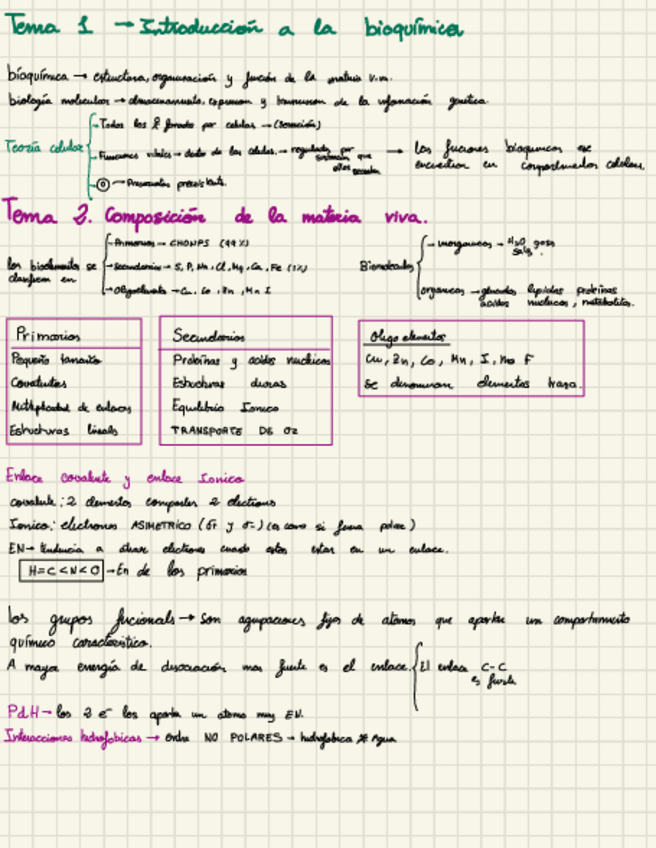 Tema 1 → Introducción a la bioquímica
bioquímica → estructura, organización y función de la materia viva.
biología molecular → almacenamiento, expresion y transmision de la información genética.
Teoría celular
- Todos los formado por celulas →
- Funciones vitales → dentro de las celulas. → reguladas por sustancias que ellas
→ Las funciones bioquimicas se encuentran en compartimentos celulares.
Tema 2. Composición de la materia viva.
los bioelementos se clasifican en
- Primarios → CHONPS (99%)
- Secundarios → S, P, Na, Cl, Mg, Ca, Fe (1%)
- Oligoelementos → Cu, Co, Zn, Mn I
Biomoleculas
- inorganicas → H2O gases sales
organicas → glucidos lipidos proteínas acidos nucleicos, metabolitos.
Primarios
Pequeño tamaño
Covalentes
Multiplicidad de enlaces
Estructuras lineals
Secundarios
Proteínas y acidos nucleicos
Estructuras duras
Equilibrio Ionico
TRANSPORTE DE O2
Oligo elementos
Cu, Zn, Co, Mn, I, Mo F
se denominan elementos traza.
Enlace covalente y enlace Ionico
covalente: 2 elementos comparten 2 electrons
Ionico: electrones ASIMETRICO (δ+ y δ-) (es como si fuera polar)
EN → tendencia a atraer electrones cuando estos estan en un enlace.
H=C<N<O → En de los primarios
los grupos funcionals → Son agrupaciones fijas de atomos que aportan un comportamiento
químico caracteristico.
A mayor energía de disociación mas fuerte es el enlace.
El enlace C-C es fuerte
PdH → los 2 e⁻ los aporta un atomo muy EN.
Interacciones hidrofobicas → entre NO POLARES → hidrofobica ≠ Agua